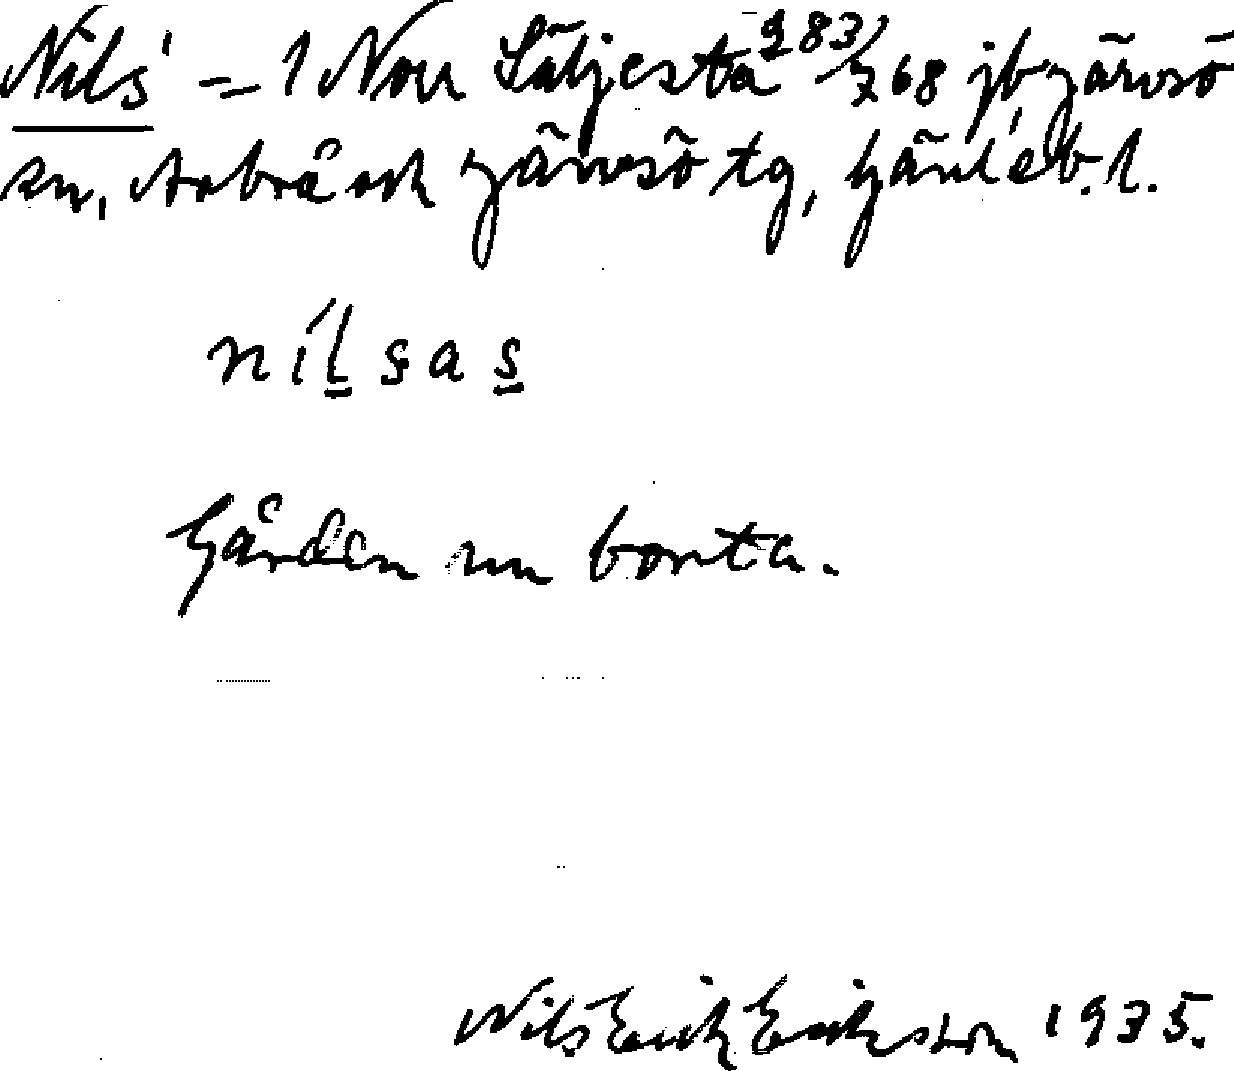 Nils' = 1 Norr Säljesta 283/768 jb Järvsö
sn, Arbrå och Järvsö tg, Gävleb. l.
nilsas
Gården nu borta.
Nils Erik Eriksson 1935.